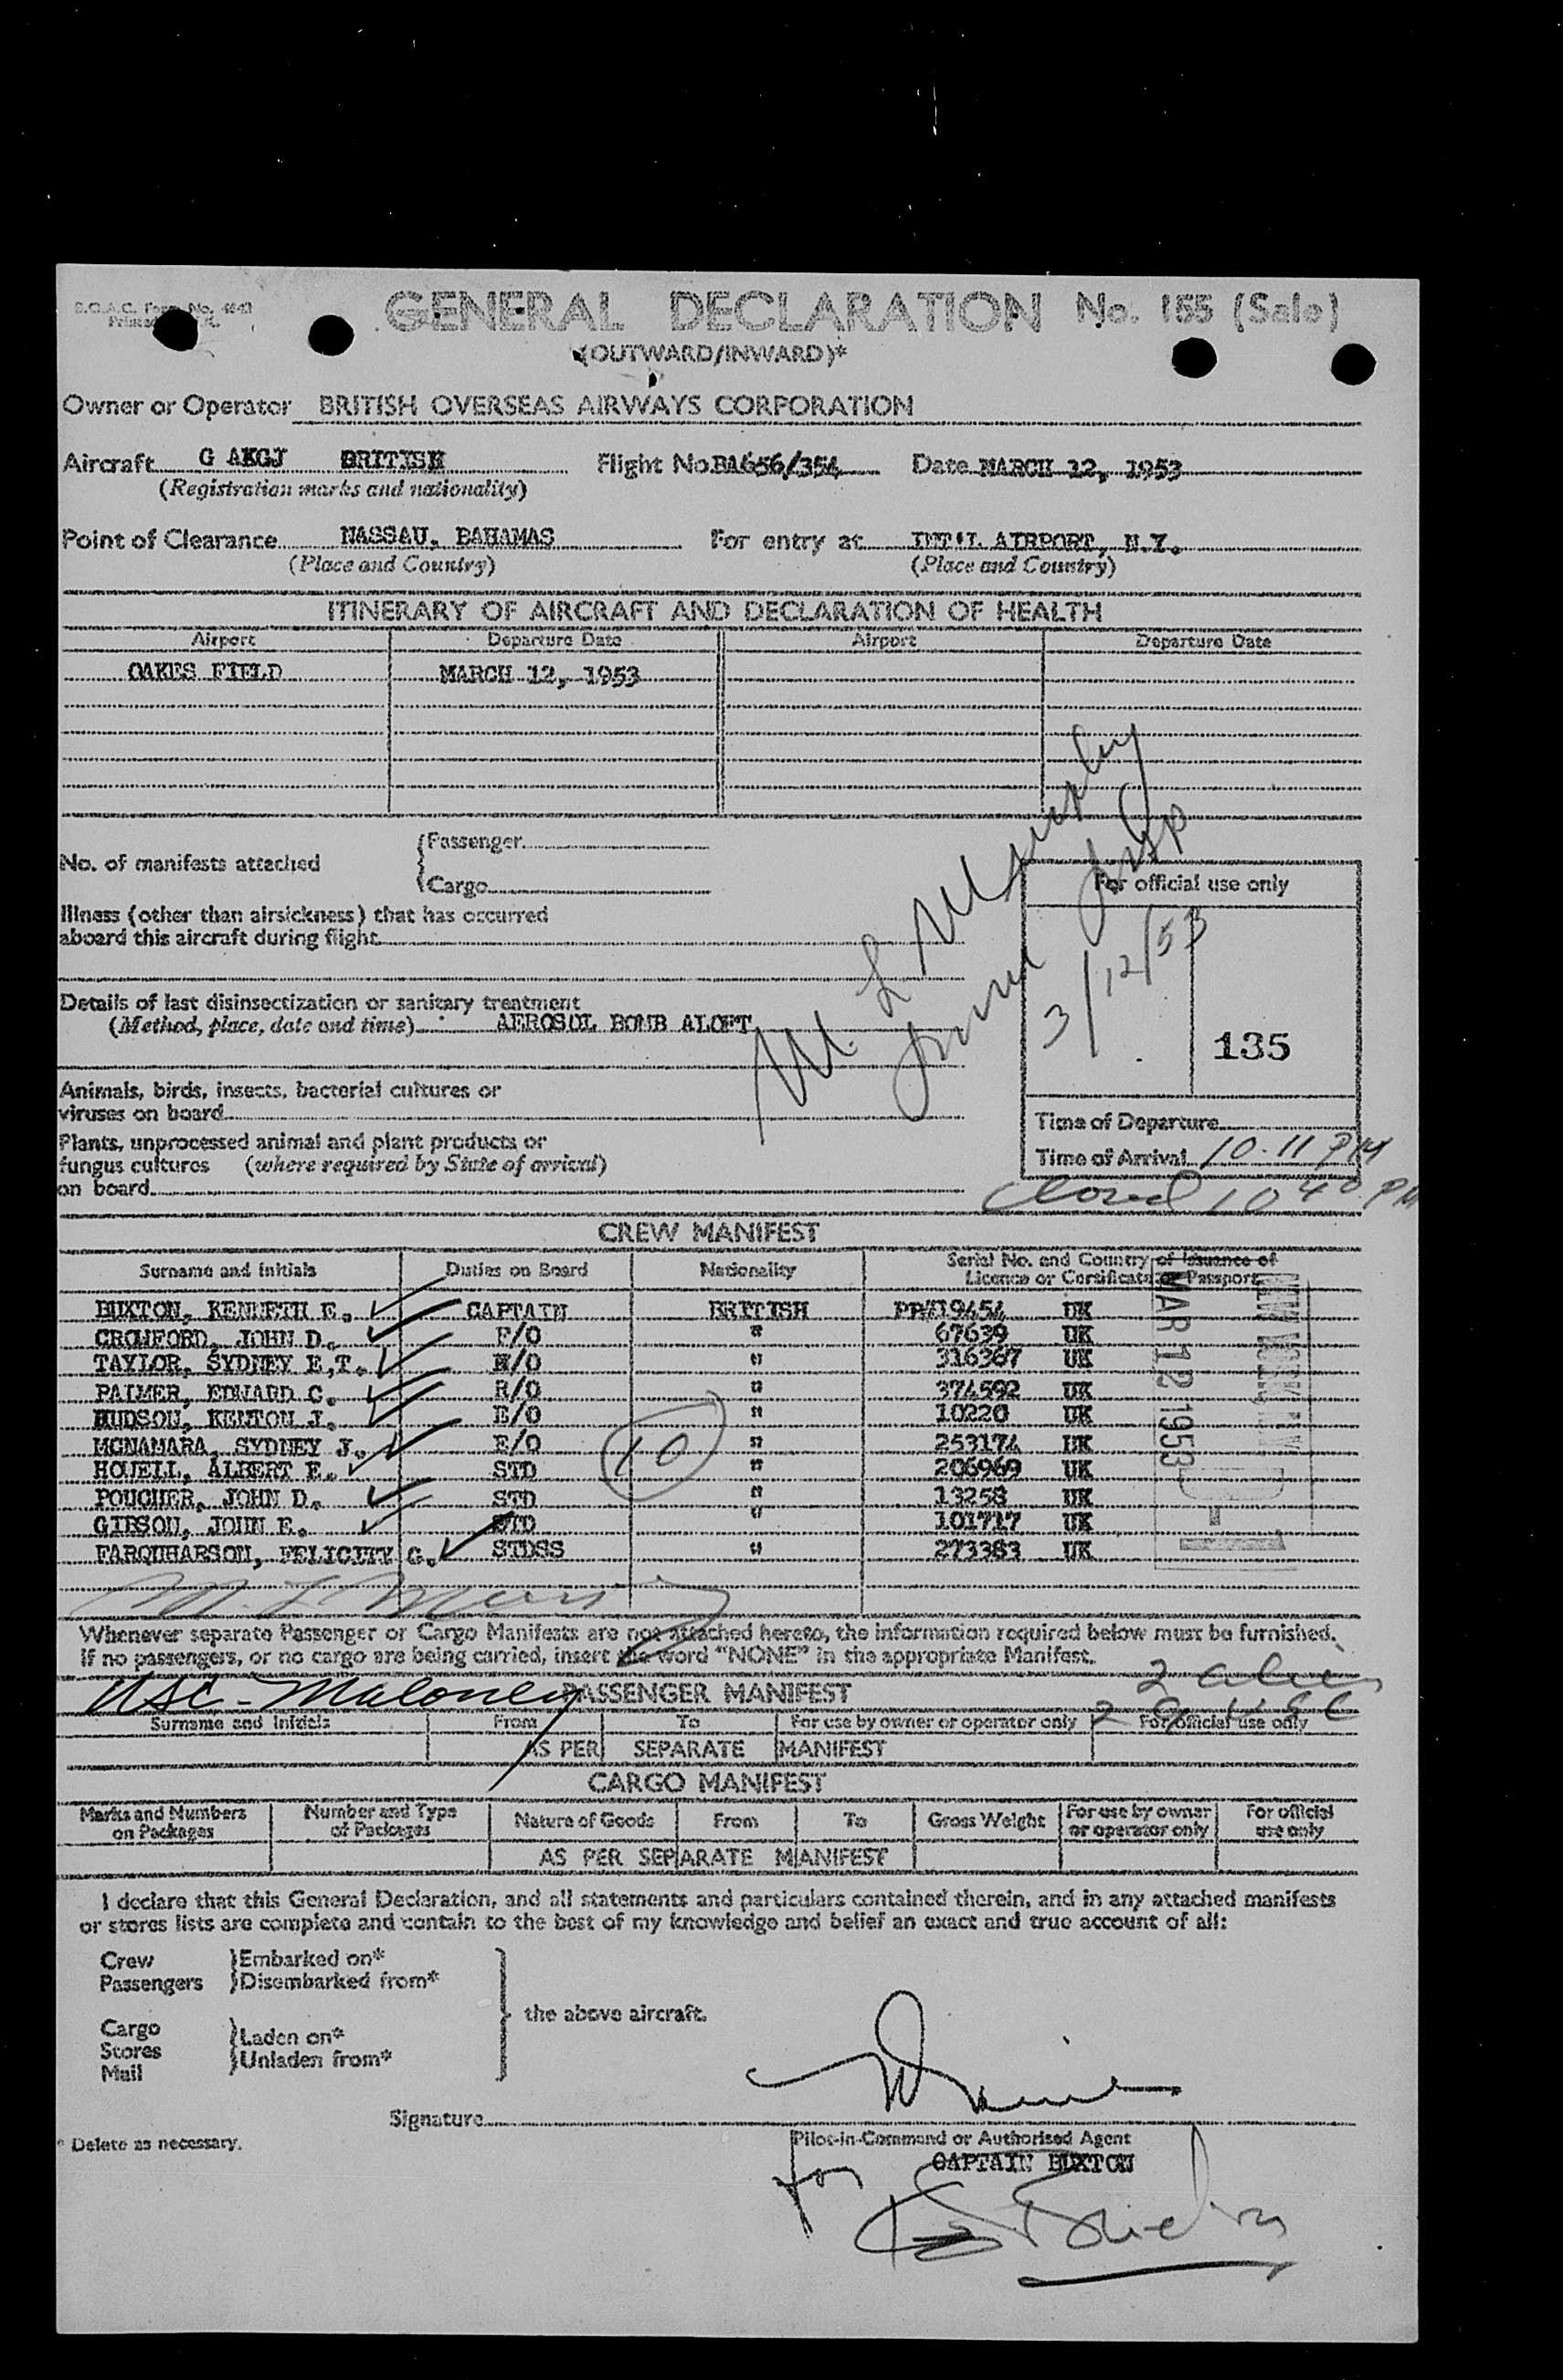 B.O.A.C. Form No. 4643
GENERAL DECLARATION No. 155 (Sale)
(OUTWARD/INWARD)*
Owner or Operator BRITISH OVERSEAS AIRWAYS CORPORATION
Aircraft G AKGJ BRITISH Flight No. BA656/354 Date MARCH 12, 1953
(Registration marks and nationality)
Point of Clearance NASSAU, BAHAMAS For entry at INT'L AIRPORT, N.Y.
(Place and Country) (Place and Country)
ITINERARY OF AIRCRAFT AND DECLARATION OF HEALTH
Airport Departure Date Airport Departure Date
OAKES FIELD MARCH 12, 1953
No. of manifests attached
Passenger
Cargo
For official use only
Illness (other than airsickness) that has occurred
aboard this aircraft during flight
3/12/53
135
Details of last disinsectization or sanitary treatment
(Method, place, date and time) AEROSOL BOMB ALOFT
Animals, birds, insects, bacterial cultures or
viruses on board
Time of Departure
Plants, unprocessed animal and plant products or
fungus cultures (where required by State of arrival)
on board
Time of Arrival 10.11 PM
Closed 10 40 PM
CREW MANIFEST
Surname and Initials Duties on Board Nationality Serial No. and Country of Issuance of
Licence or Certificate or Passport
BUXTON, KENNETH E. CAPTAIN BRITISH PP#19454 UK
CROWFORD, JOHN D. F/O " 67639 UK
TAYLOR, SYDNEY E.T. N/O " 316367 UK
PALMER, EDWARD C. R/O " 374592 UK
HUDSON, KENTON J. E/O " 10220 UK
MCNAMARA, SYDNEY J. E/O " 253174 UK
HOWELL, ALBERT E. STD " 206969 UK
POUCHER, JOHN D. STD " 13258 UK
GIBSON, JOHN E. STD " 101717 UK
FARQUHARSON, FELICITY G. STDSS " 273383 UK
10
NEW YORK, N.Y.
MAR 12 1953
Whenever separate Passenger or Cargo Manifests are not attached hereto, the information required below must be furnished.
If no passengers, or no cargo are being carried, insert the word "NONE" in the appropriate Manifest.
Maloney
2 alien
29 USC
PASSENGER MANIFEST
Surname and Initials From To For use by owner or operator only For official use only
AS PER SEPARATE MANIFEST
CARGO MANIFEST
Marks and Numbers on Packages Number and Type of Packages Nature of Goods From To Gross Weight For use by owner or operator only For official use only
AS PER SEPARATE MANIFEST
I declare that this General Declaration, and all statements and particulars contained therein, and in any attached manifests
or stores lists are complete and contain to the best of my knowledge and belief an exact and true account of all:
Crew Embarked on*
Passengers Disembarked from*
the above aircraft.
Cargo
Stores Laden on*
Mail Unladen from*
Signature
* Delete as necessary.
Pilot-in-Command or Authorised Agent
for CAPTAIN BUXTON